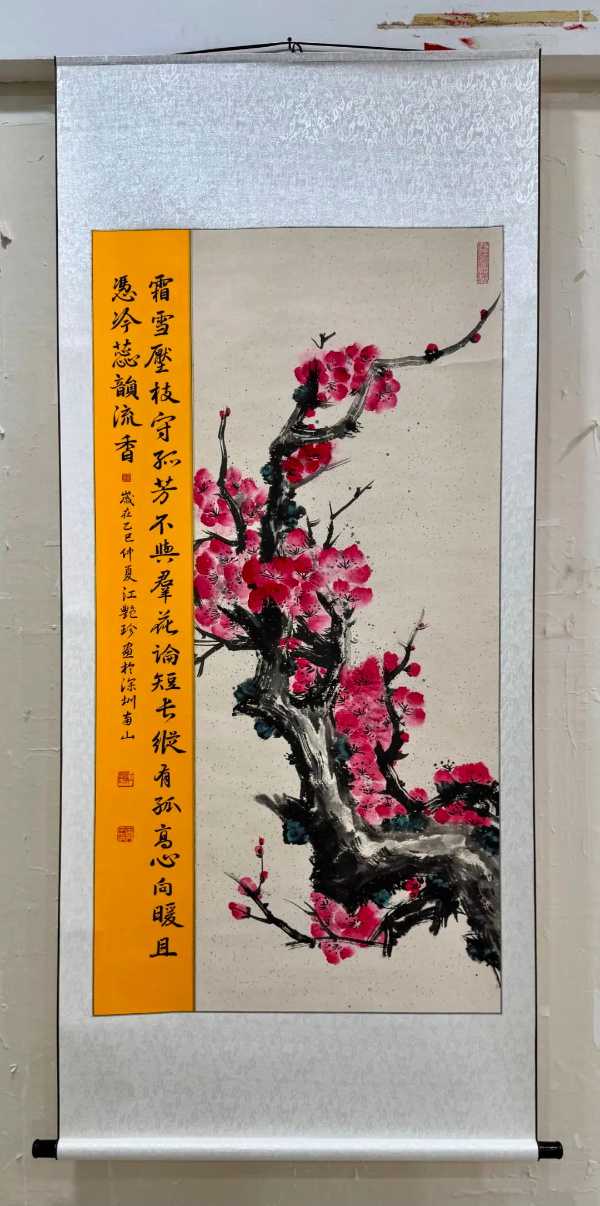 霜雪壓枝守孤芳不與羣花論短長縱有孤高心向暖且
憑冷蕊韻流香
歲在乙巳仲夏江艷珍畫於深圳南山